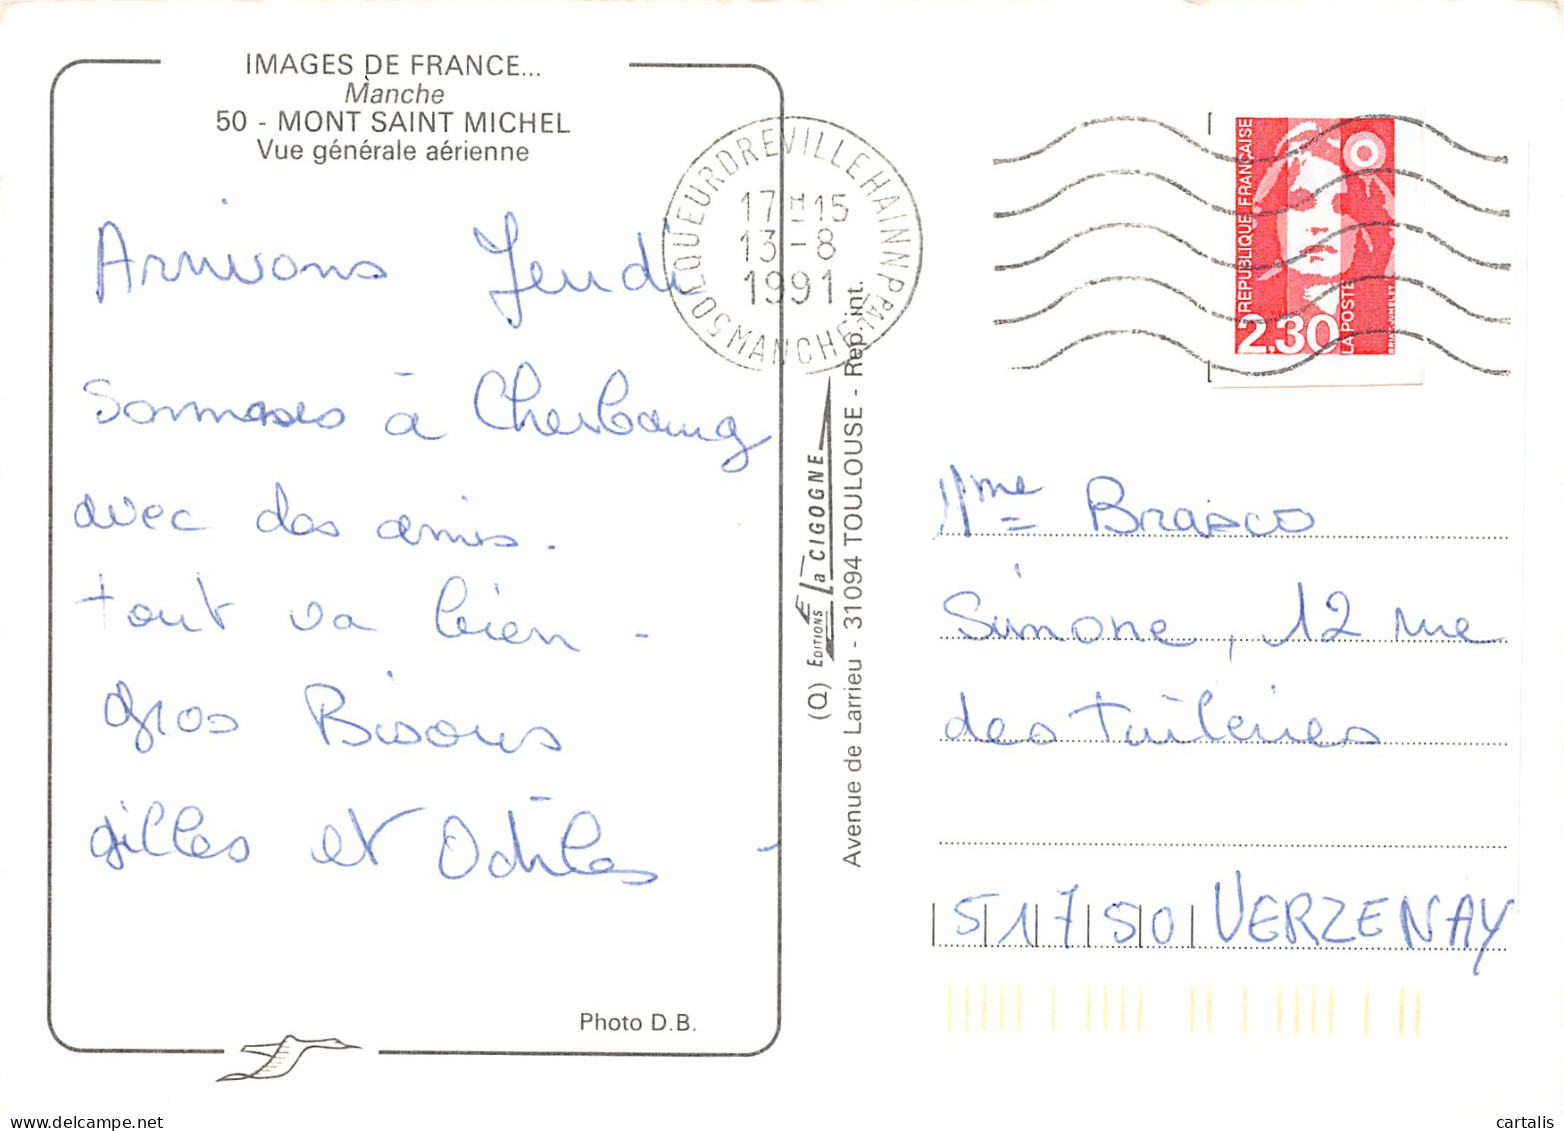 IMAGES DE FRANCE...
Manche
50 - MONT SAINT MICHEL
Vue générale aérienne
Arrivons Jeudi
Sommes à Cherbourg
avec des amis.
tout va bien -
gros Bisous
gilles et Odile
Photo D.B.
50 EQUEURDREVILLE HAINN PPAL
MANCHE
17 H 15
13 - 8
1991
(Q) EDITIONS La CIGOGNE
Avenue de Larrieu - 31094 TOULOUSE - Rep. int.
REPUBLIQUE FRANÇAISE
2,30
LA POSTE
Mme Brasco
Simone, 12 rue
des Tuileries
51750 VERZENAY
cartalis